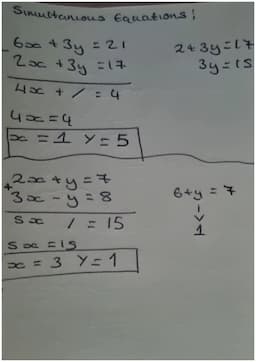 Simultanious Equations:
6x + 3y = 21
2x + 3y = 17
4x + / = 4
4x = 4
x = 1 y = 5
2 + 3y = 17
3y = 15
+ 2x + y = 7
3x - y = 8
5x / = 15
5x = 15
x = 3 y = 1
6 + y = 7
1